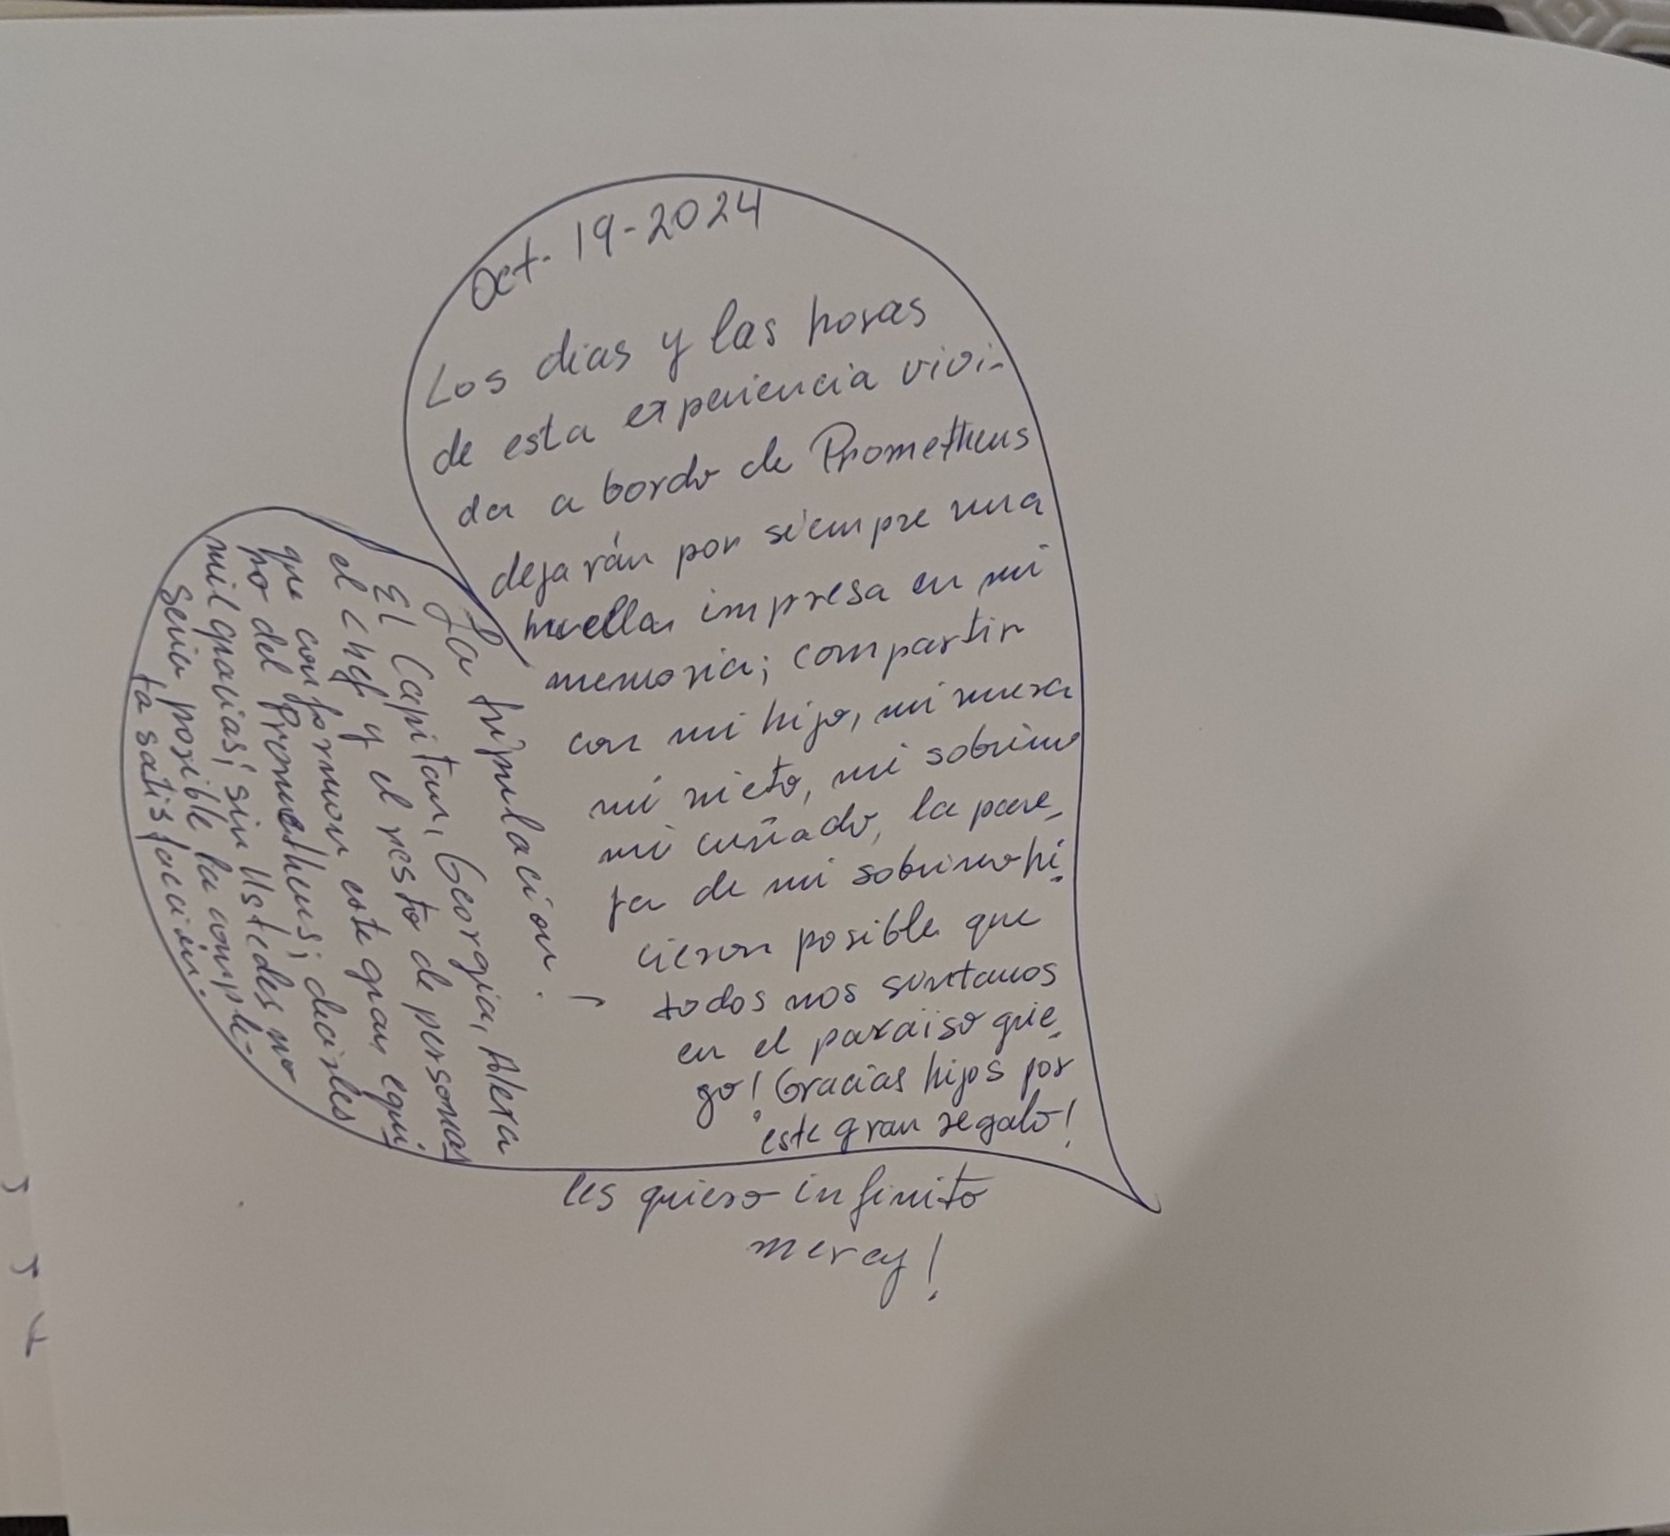 Oct. 19-2024
Los dias y las horas
de esta experiencia vivi-
da a bordo de Prometheus
dejarán por siempre una
huella impresa en mi
memoria; compartir
con mi hijo, mi nuera
mi nieto, mi sobrino
mi cuñado, la pare_
ja de mi sobrino hi_
cieron posible que
todos nos sintamos
en el paraiso grie_
go! Gracias hijos por
este gran regalo!
La tripulación.
El Capitan, Georgia, Alexa
el chef y el resto de personas
que conforman este gran equi_
po del Prometheus; decirles
mil gracias; sin Ustedes no
seria posible la comple_
ta satisfacción.
les quiero infinito
mercy!